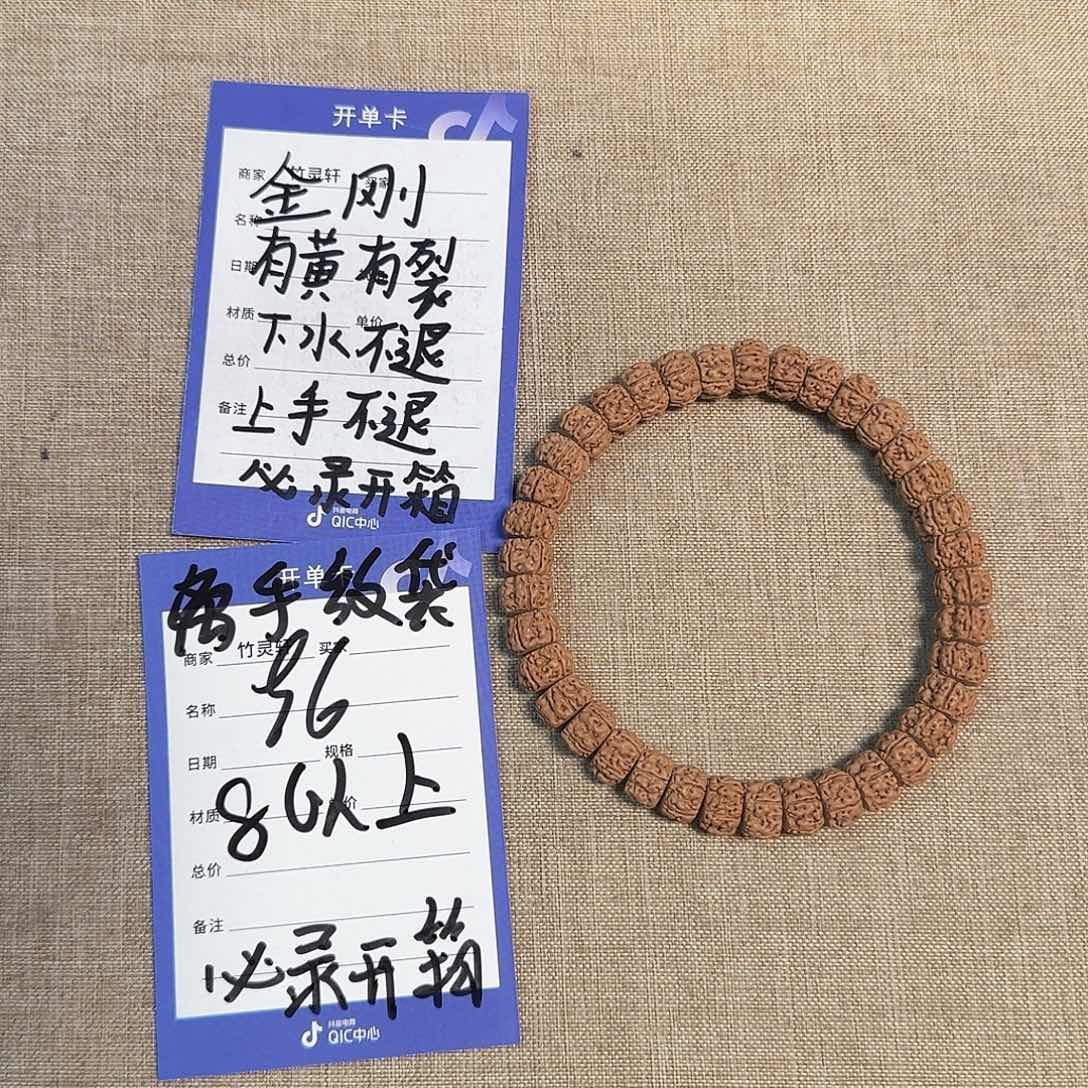 开单卡
商家 竹灵轩 买家
金刚
名称
有黄有裂
日期
下水不退
材质 单价
总价
上手不退
备注
必录开箱
抖音电商
QIC中心
开单卡
离手级袋
商家 竹灵轩 买家
36
名称
日期 规格
8以上
材质 单价
总价
备注
必录开箱
抖音电商
QIC中心